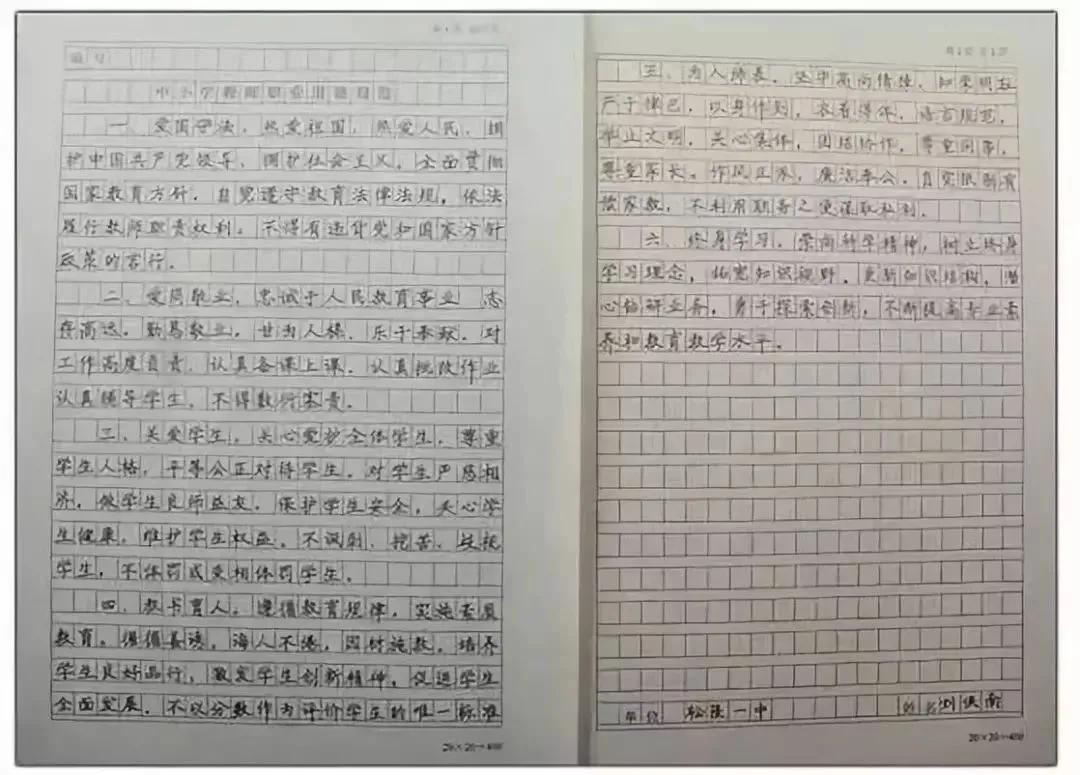 编号
中小学教师职业道德规范
一、爱国守法。热爱祖国，热爱人民，拥
护中国共产党领导，拥护社会主义。全面贯彻
国家教育方针，自觉遵守教育法律法规，依法
履行教师职责权利。不得有违背党和国家方针
政策的言行。
二、爱岗敬业。忠诚于人民教育事业 志
存高远，勤恳敬业，甘为人梯，乐于奉献。对
工作高度负责，认真备课上课，认真批改作业
认真辅导学生，不得敷衍塞责。
三、关爱学生。关心爱护全体学生，尊重
学生人格，平等公正对待学生。对学生严慈相
济，做学生良师益友。保护学生安全，关心学
生健康，维护学生权益。不讽刺、挖苦、歧视
学生，不体罚或变相体罚学生。
四、教书育人。遵循教育规律，实施素质
教育。循循善诱，诲人不倦，因材施教。培养
学生良好品行，激发学生创新精神，促进学生
全面发展。不以分数作为评价学生的唯一标准
20×20=400
第1页 共1页
为人师表。坚守高尚情操，知荣明耻
严于律己，以身作则。衣着得体，语言规范，
举止文明。关心集体，团结协作，尊重同事，
尊重家长。作风正派，廉洁奉公。自觉抵制有
偿家教，不利用职务之便谋取私利。
六、终身学习。崇尚科学精神，树立终身
学习理念，拓宽知识视野，更新知识结构。潜
心钻研业务，勇于探索创新，不断提高专业素
养和教育教学水平。
单位 松陵一中 姓名
20×20=400